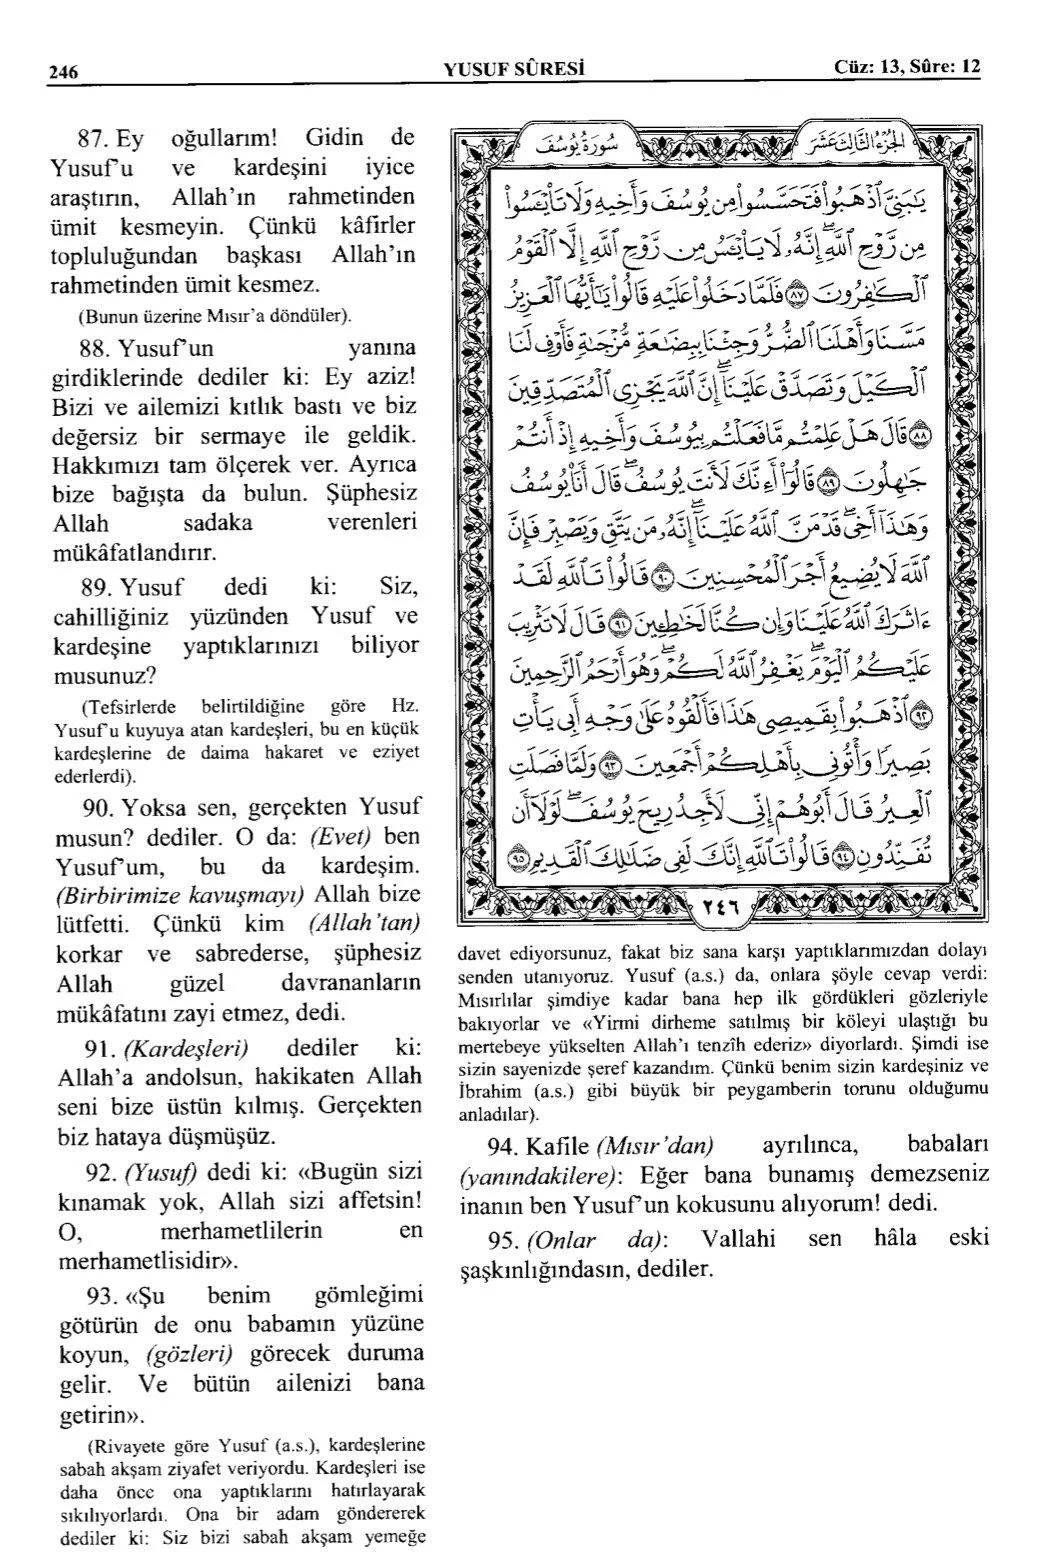 246
YUSUF SÛRESİ
Cüz: 13, Sûre: 12
87. Ey oğullarım! Gidin de
Yusuf'u ve kardeşini iyice
araştırın, Allah'ın rahmetinden
ümit kesmeyin. Çünkü kâfirler
topluluğundan başkası Allah'ın
rahmetinden ümit kesmez.
(Bunun üzerine Mısır'a döndüler).
88. Yusuf'un yanına
girdiklerinde dediler ki: Ey aziz!
Bizi ve ailemizi kıtlık bastı ve biz
değersiz bir sermaye ile geldik.
Hakkımızı tam ölçerek ver. Ayrıca
bize bağışta da bulun. Şüphesiz
Allah sadaka verenleri
mükâfatlandırır.
89. Yusuf dedi ki: Siz,
cahilliğiniz yüzünden Yusuf ve
kardeşine yaptıklarınızı biliyor
musunuz?
(Tefsirlerde belirtildiğine göre Hz.
Yusuf'u kuyuya atan kardeşleri, bu en küçük
kardeşlerine de daima hakaret ve eziyet
ederlerdi).
90. Yoksa sen, gerçekten Yusuf
musun? dediler. O da: (Evet) ben
Yusuf'um, bu da kardeşim.
(Birbirimize kavuşmayı) Allah bize
lütfetti. Çünkü kim (Allah'tan)
korkar ve sabrederse, şüphesiz
Allah güzel davrananların
mükâfatını zayi etmez, dedi.
91. (Kardeşleri) dediler ki:
Allah'a andolsun, hakikaten Allah
seni bize üstün kılmış. Gerçekten
biz hataya düşmüşüz.
92. (Yusuf) dedi ki: «Bugün sizi
kınamak yok, Allah sizi affetsin!
O, merhametlilerin en
merhametlisidir».
93. «Şu benim gömleğimi
götürün de onu babamın yüzüne
koyun, (gözleri) görecek duruma
gelir. Ve bütün ailenizi bana
getirin».
(Rivayete göre Yusuf (a.s.), kardeşlerine
sabah akşam ziyafet veriyordu. Kardeşleri ise
daha önce ona yaptıklarını hatırlayarak
sıkılıyorlardı. Ona bir adam göndererek
dediler ki: Siz bizi sabah akşam yemeğe
سُورَةُ يُوسُفَ
الجُزْءُ الثَّالِثَ عَشَرَ
يَٰبَنِيَّ ٱذْهَبُوا۟ فَتَحَسَّسُوا۟ مِن يُوسُفَ وَأَخِيهِ وَلَا تَا۟يْـَٔسُوا۟
مِن رَّوْحِ ٱللَّهِ إِنَّهُۥ لَا يَا۟يْـَٔسُ مِن رَّوْحِ ٱللَّهِ إِلَّا ٱلْقَوْمُ
ٱلْكَٰفِرُونَ ٨٧ فَلَمَّا دَخَلُوا۟ عَلَيْهِ قَالُوا۟ يَٰٓأَيُّهَا ٱلْعَزِيزُ
مَسَّنَا وَأَهْلَنَا ٱلضُّرُّ وَجِئْنَا بِبِضَٰعَةٍ مُّزْجَىٰةٍ فَأَوْفِ لَنَا
ٱلْكَيْلَ وَتَصَدَّقْ عَلَيْنَآ ۖ إِنَّ ٱللَّهَ يَجْزِى ٱلْمُتَصَدِّقِينَ
٨٨ قَالَ هَلْ عَلِمْتُم مَّا فَعَلْتُم بِيُوسُفَ وَأَخِيهِ إِذْ أَنتُمْ
جَٰهِلُونَ ٨٩ قَالُوٓا۟ أَءِنَّكَ لَأَنتَ يُوسُفُ ۖ قَالَ أَنَا۠ يُوسُفُ
وَهَٰذَآ أَخِى ۖ قَدْ مَنَّ ٱللَّهُ عَلَيْنَآ ۖ إِنَّهُۥ مَن يَتَّقِ وَيَصْبِرْ فَإِنَّ
ٱللَّهَ لَا يُضِيعُ أَجْرَ ٱلْمُحْسِنِينَ ٩٠ قَالُوا۟ تَٱللَّهِ لَقَدْ
ءَاثَرَكَ ٱللَّهُ عَلَيْنَا وَإِن كُنَّا لَخَٰطِـِٔينَ ٩١ قَالَ لَا تَثْرِيبَ
عَلَيْكُمُ ٱلْيَوْمَ ۖ يَغْفِرُ ٱللَّهُ لَكُمْ ۖ وَهُوَ أَرْحَمُ ٱلرَّٰحِمِينَ
٩٢ ٱذْهَبُوا۟ بِقَمِيصِى هَٰذَا فَأَلْقُوهُ عَلَىٰ وَجْهِ أَبِى يَأْتِ
بَصِيرًا وَأْتُونِى بِأَهْلِكُمْ أَجْمَعِينَ ٩٣ وَلَمَّا فَصَلَتِ
ٱلْعِيرُ قَالَ أَبُوهُمْ إِنِّى لَأَجِدُ رِيحَ يُوسُفَ ۖ لَوْلَآ أَن
تُفَنِّدُونِ ٩٤ قَالُوا۟ تَٱللَّهِ إِنَّكَ لَفِى ضَلَٰلِكَ ٱلْقَدِيمِ ٩٥
٢٤٦
davet ediyorsunuz, fakat biz sana karşı yaptıklarımızdan dolayı
senden utanıyoruz. Yusuf (a.s.) da, onlara şöyle cevap verdi:
Mısırlılar şimdiye kadar bana hep ilk gördükleri gözleriyle
bakıyorlar ve «Yirmi dirheme satılmış bir köleyi ulaştığı bu
mertebeye yükselten Allah'ı tenzîh ederiz» diyorlardı. Şimdi ise
sizin sayenizde şeref kazandım. Çünkü benim sizin kardeşiniz ve
İbrahim (a.s.) gibi büyük bir peygamberin torunu olduğumu
anladılar).
94. Kafile (Mısır'dan) ayrılınca, babaları
(yanındakilere): Eğer bana bunamış demezseniz
inanın ben Yusuf'un kokusunu alıyorum! dedi.
95. (Onlar da): Vallahi sen hâla eski
şaşkınlığındasın, dediler.